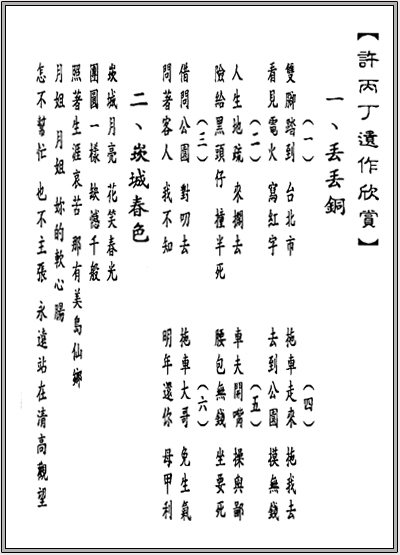 【許丙丁遺作欣賞】
一、丟丟銅
(一)
雙腳踏到 台北市
看見電火 寫紅字
(二)
人生地疏 來擱去
險給黑頭仔 撞半死
(三)
借問公園 對叨去
問著客人 我不知
(四)
拖車走來 拖我去
去到公園 摸無錢
(五)
車夫開嘴 操與鄙
腰包無錢 坐要死
(六)
拖車大哥 免生氣
明年還你 母甲利
二、崁城春色
崁城月亮 花笑春光
團圓一樣 缺憾千般
照著生涯哀苦 那有美島仙鄉
月姐 月姐 妳的軟心腸
怎不幫忙 也不主張 永遠站在清高觀望